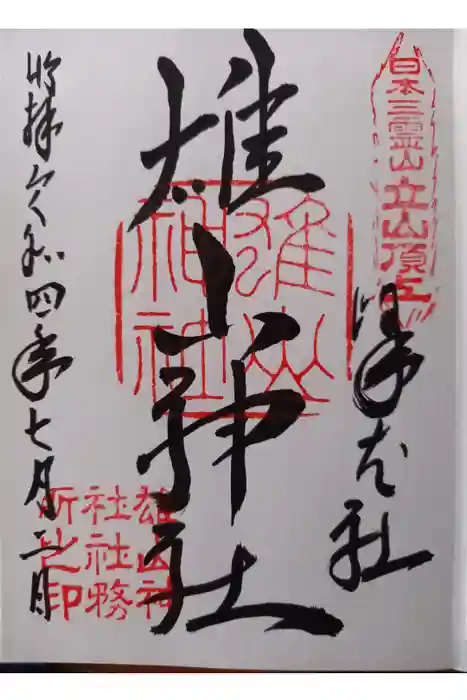 日本三霊山立山頂上
峯本社
雄山神社
雄山神社
登拝令和四年七月二日
雄山神社社務所之印